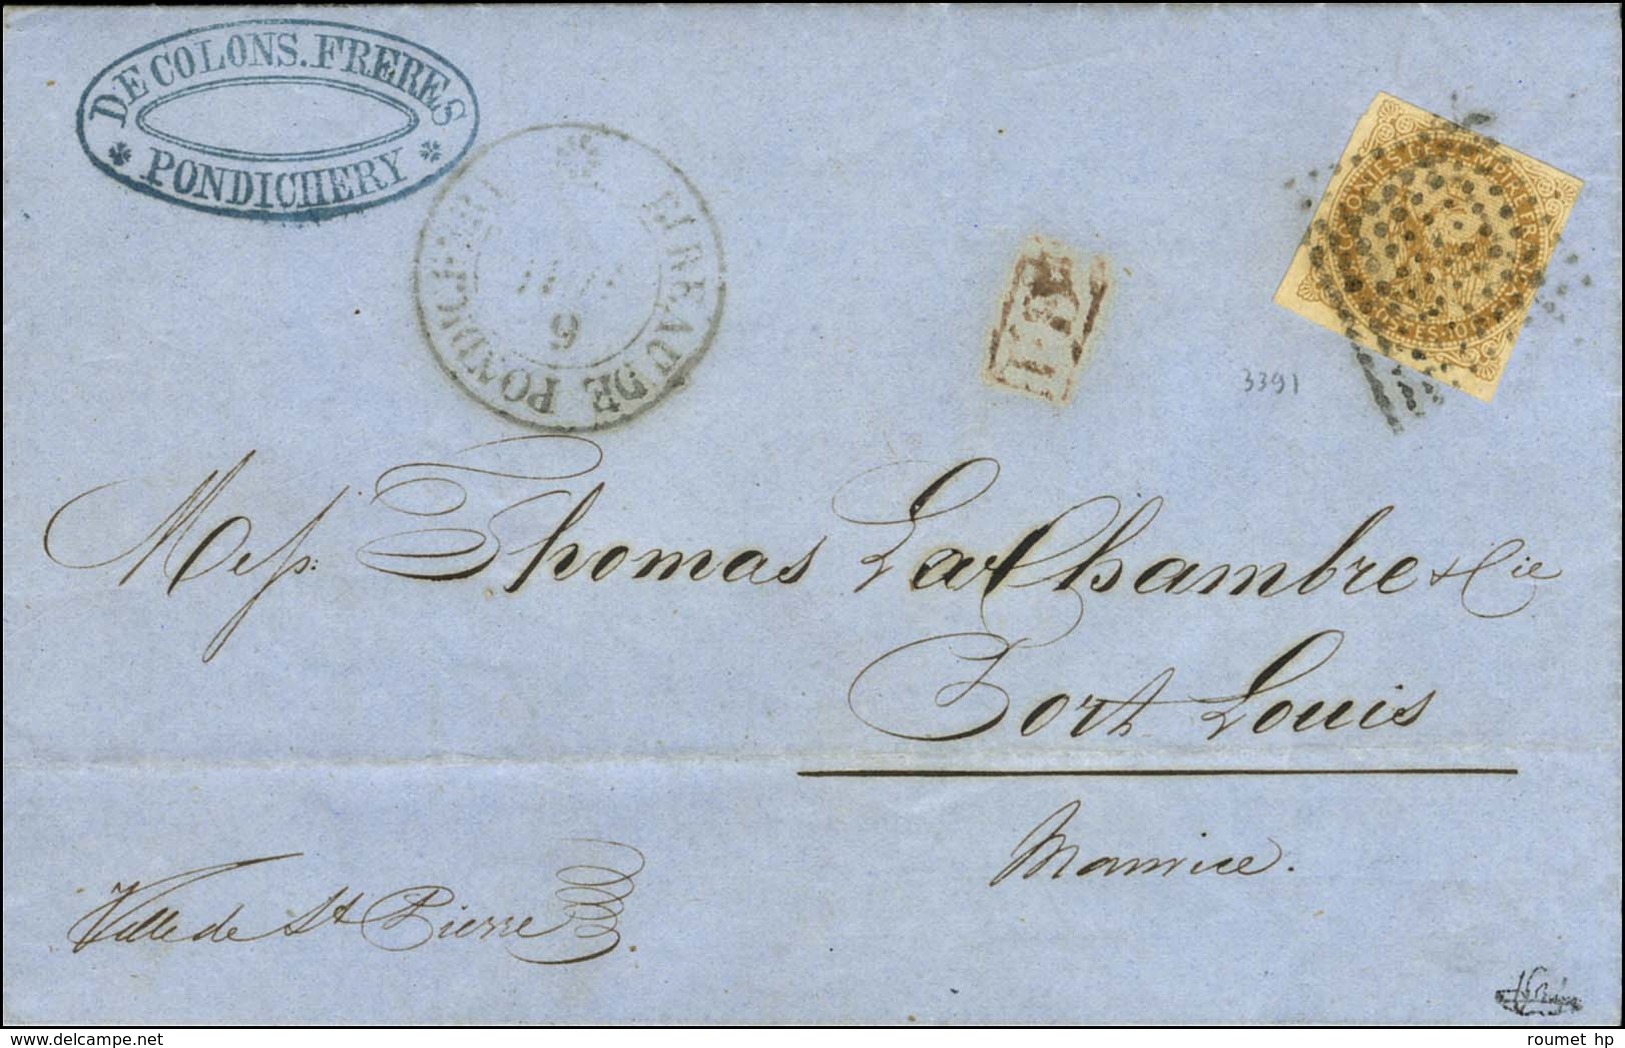 DE COLONS. FRERES
* PONDICHERY *
BUREAU DE PONDICHERY
6
P.P.
COLONIES DE L'EMPIRE FRANÇAIS
POSTES
3391
Mess. Thomas LaChambre & Cie
Port Louis
Maurice.
Ville de St Pierre
roumet hp